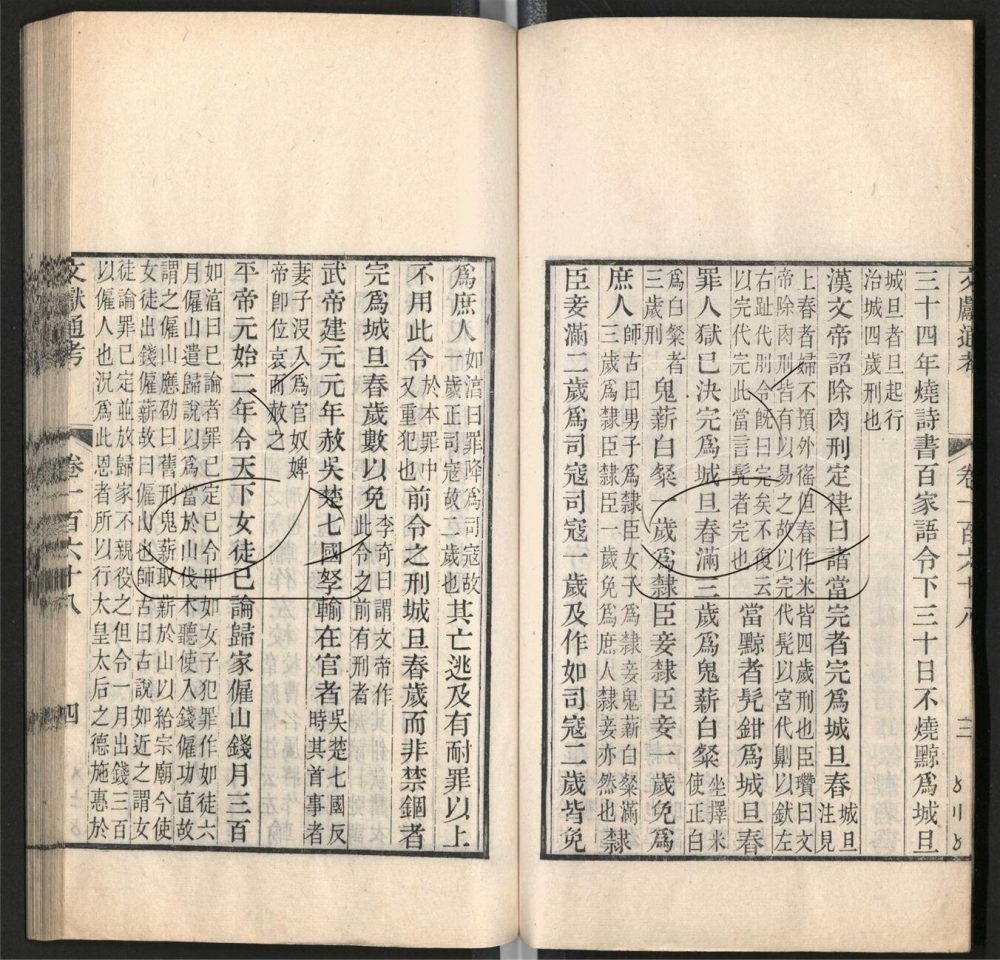 三十四年燒詩書百家語令下三十日不燒黥爲城旦
城旦者旦起行
治城四歲刑也
漢文帝詔除肉刑定律曰諸當完者完爲城旦舂城旦
注見
上舂者婦不預外徭但舂作米皆四歲刑也臣瓚曰文
帝除肉刑皆有以易之故以完代髡以宮代劓以釱左
右趾代刖今旣曰完矣不復云
以完代完此當言髡者完也
當黥者髡鉗爲城旦舂
罪人獄已決完爲城旦舂滿三歲爲鬼薪白粲坐擇米
使正白
爲白粲者
三歲刑
鬼薪白粲一歲爲隸臣妾隸臣妾一歲免爲
庶人師古曰男子爲隸臣女子爲隸妾鬼薪白粲滿
三歲爲隸臣隸臣一歲免爲庶人隸妾亦然也
隸
臣妾滿二歲爲司寇司寇一歲及作如司寇二歲皆免
文獻通考 卷一百六十八 三
爲庶人如淳曰罪降爲司寇故
一歲正司寇故二歲也
其亡逃及有耐罪以上
不用此令於本罪中
又重犯也
前令之刑城旦舂歲而非禁錮者
完爲城旦舂歲數以免李奇曰謂文帝作
此令之前有刑者
武帝建元元年赦吳楚七國孥輸在官者吳楚七國反
時其首事者
妻子沒入爲官奴婢
帝卽位哀而赦之
平帝元始二年令天下女徒已論歸家僱山錢月三百
如淳曰已論者罪已定已令甲如女子犯罪作如徒六
月僱山遣歸說以爲當於山伐木聽使入錢僱功直故
謂之僱山應劭曰舊刑鬼薪取薪於山以給宗廟今使
女徒出錢僱薪故曰僱山也師古曰古說如近之謂女
徒論罪已定並放歸家不親役之但令一月出錢三百
以僱人也況爲此恩者所以行太皇太后之德施惠於
文獻通考 卷一百六十八 四